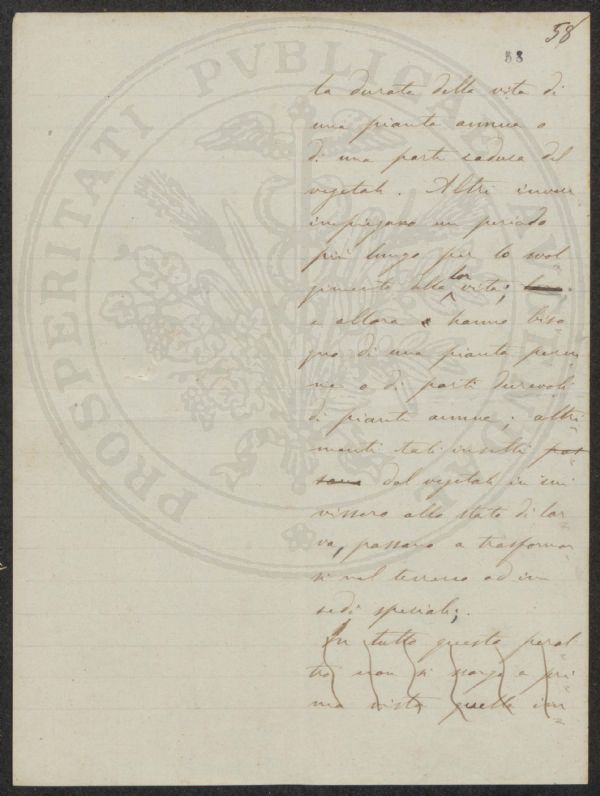 58
58
la durata della vita di
una pianta annua o
di una parte caduca del
vegetale. Altri invece
impiegano un periodo
più lungo per lo svol
gimento della lor vita;
e allora hanno biso
gno di una pianta peren
ne o di parti durevoli
di piante annue; altri
menti tali insetti pas
sano dal vegetale in cui
vissero allo stato di lar
va, passano a trasformar
si nel terreno od in
sedi speciali;
In tutto questo peral
tro non si scorge a pri
ma vista quella im
PROSPERITATI PVBLICAE AVGENDAE